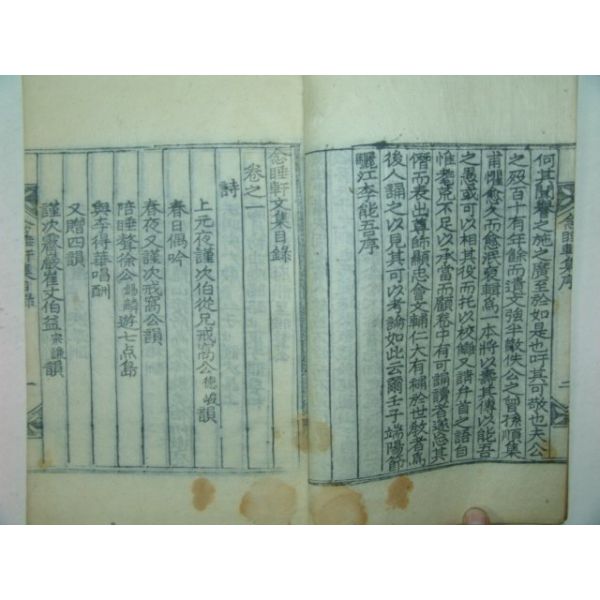 何其見眷之施之廣至於如是也吁其可敬也夫公
之歿百十有年餘而遺文強半散佚公之曾孫順集
甫懼愈久而愈泯裒輯爲一本將以壽其傳以能吾
之愚或可以相其役而托以校讎又請弁首之語自
惟耄荒不足以承當而顧卷中有可論讀者遂忘其
僭而表出尊師顯志會文輔仁大有補於世敎者爲
後人誦之以見其可以考論如此云爾壬子端陽節
驪江李能五序
念睡軒文集目錄
卷之一
詩
上元夜謹次伯從兄戒窩公德峻韻
春日偶吟
春夜又謹次戒窩公韻
陪睡聱徐公錫麟遊七点島
與李得華唱酬
又贈四韻
謹次崔文伯益宗謙韻